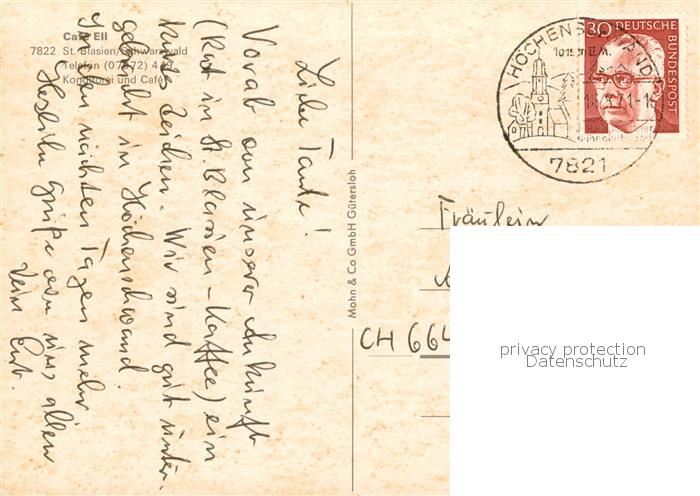 Café Ell
7822 St. Blasien/Schwarzwald
Telefon (07672) 4
Konditorei und Café
Liebe Tante!
Vorab von unserer Ankunft
(Rast in St. Blasien - Kaffee) ein
kurzes Zeichen. Wir sind gut unter-
gebracht in Höchenschwand.
In den nächsten Tagen mehr
Herzliche Grüße von uns allen
Dein
Mohn & Co GmbH Gütersloh
HÖCHENSCHWAND
1015 m ü. M.
7821
30 DEUTSCHE
BUNDESPOST
Fräulein
CH 664
privacy protection
Datenschutz